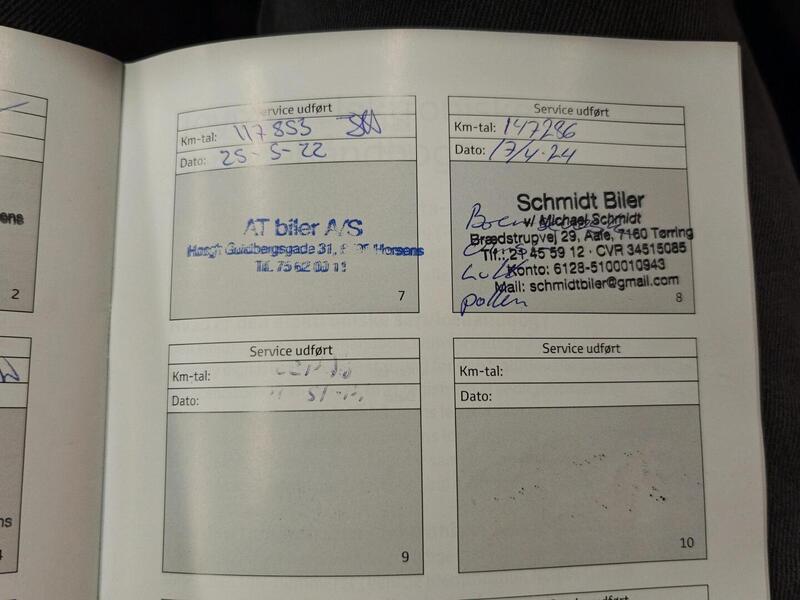 ens
2
ns
4
Service udført
Km-tal: 117853
Dato: 25-5-22
AT biler A/S
Høegh Guldbergsgade 31, Horsens
Tlf. 75 62 00 11
7
Service udført
Km-tal: 147286
Dato: 17/4-24
Schmidt Biler
v/ Michael Schmidt
Brædstrupvej 29, Aale, 7160 Tørring
Tlf.: 21 45 59 12 · CVR 34515085
Konto: 6128-5100010943
Mail: schmidtbiler@gmail.com
pollen
8
Service udført
Km-tal:
Dato:
9
Service udført
Km-tal:
Dato:
10
Service udført